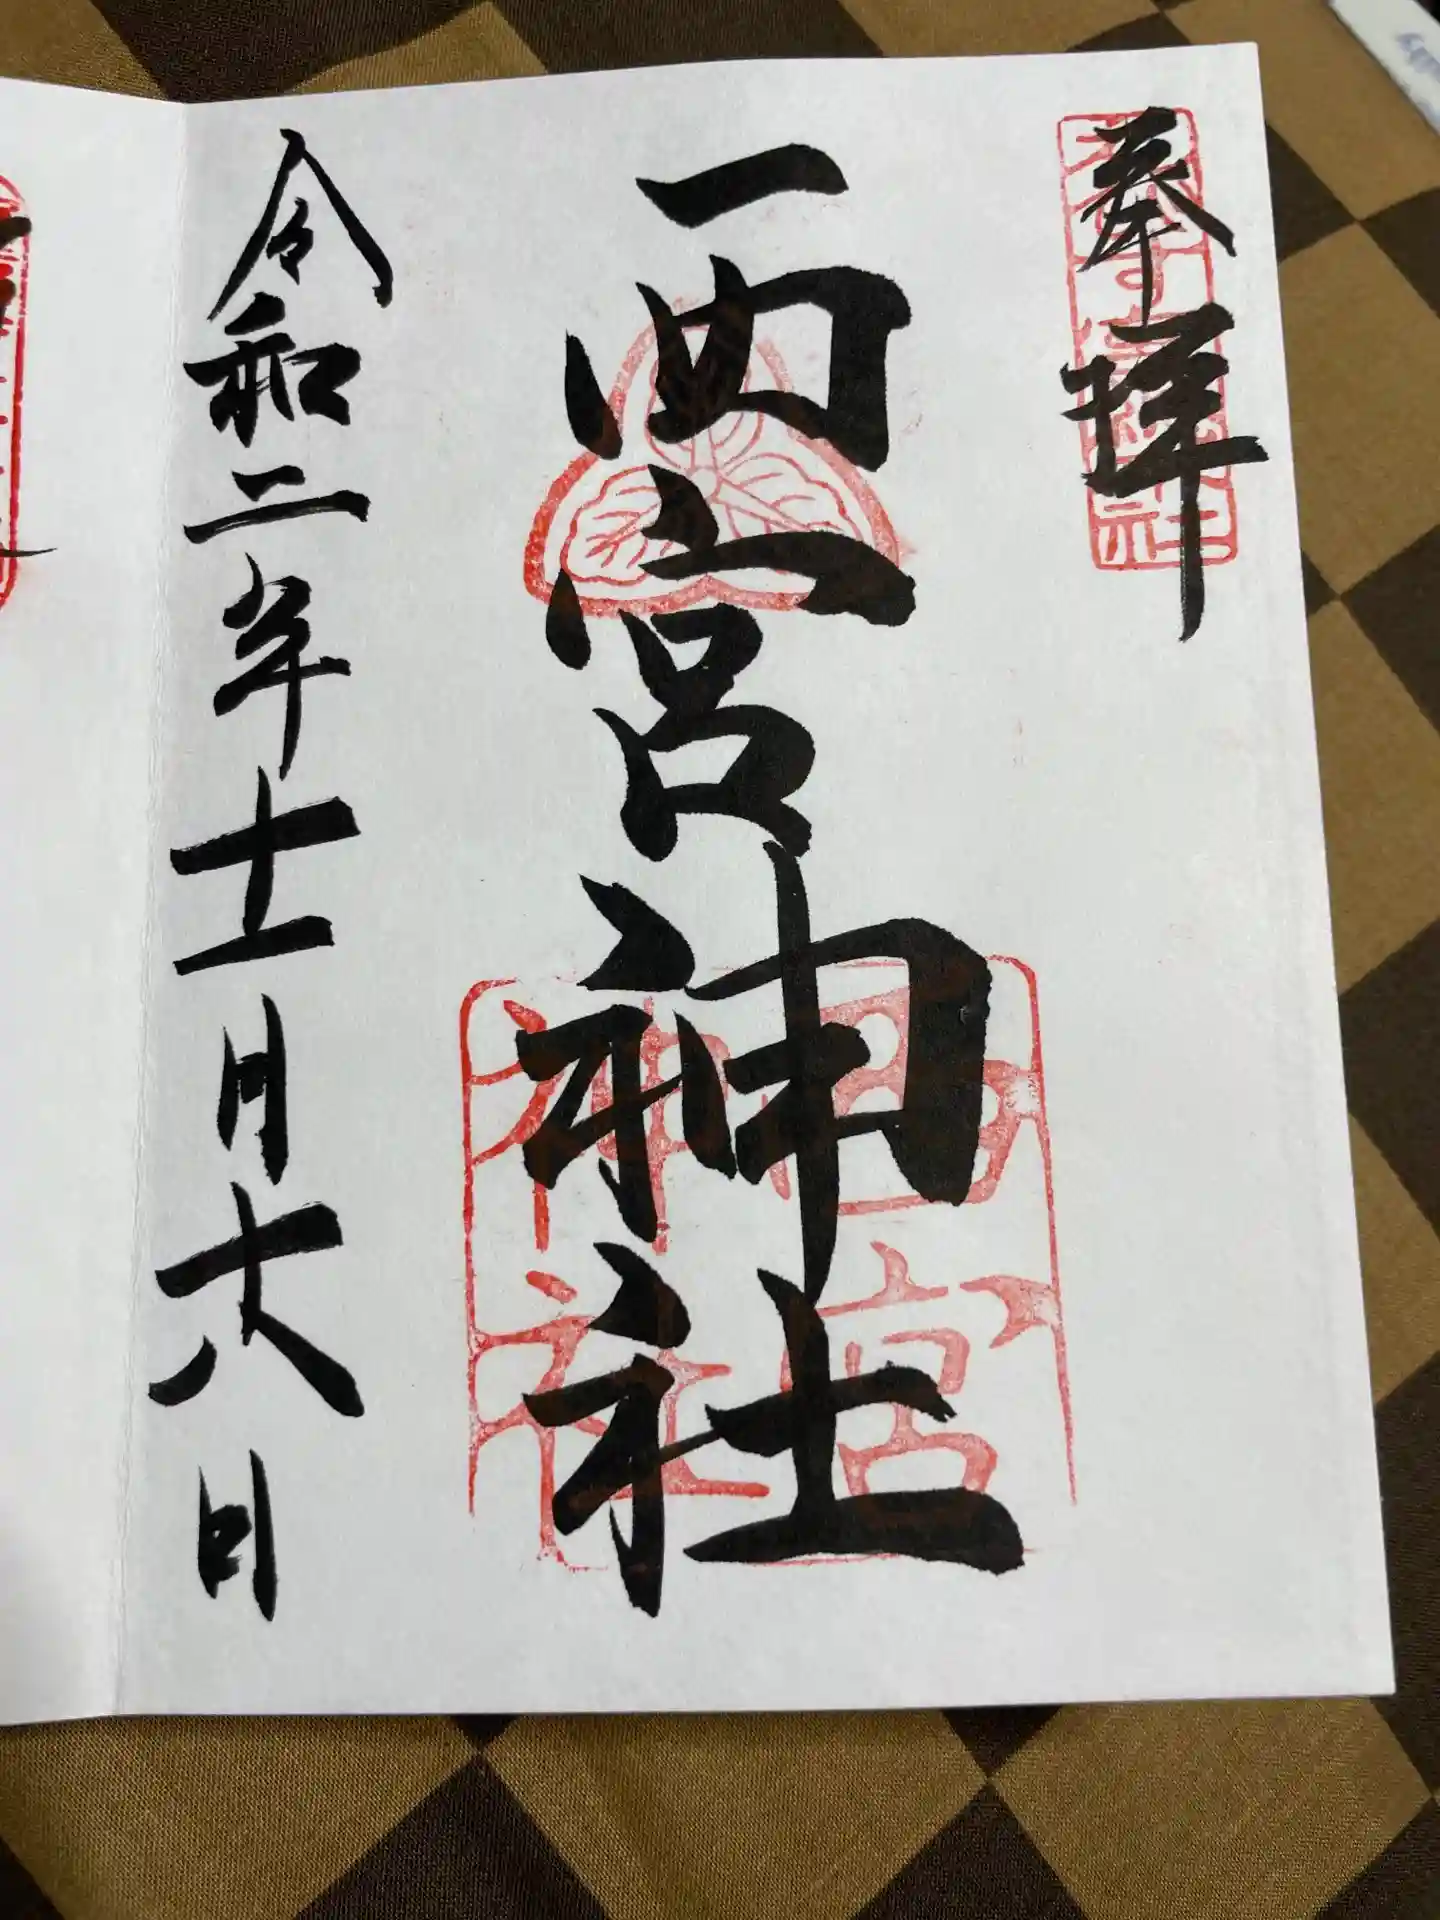 奉拝
西宮神社
令和二年十一月十六日
西宮神社